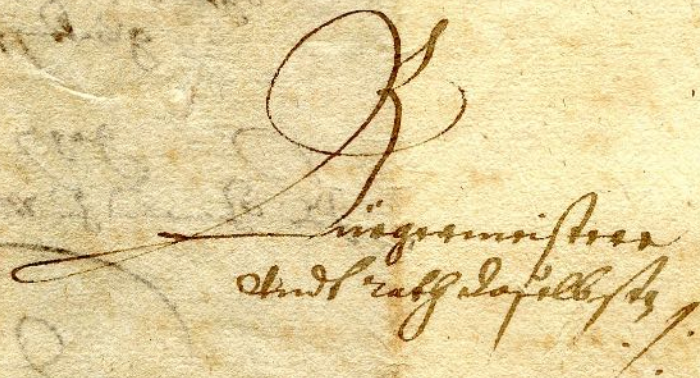 Bürgermeistere
Undt rath daselbsten